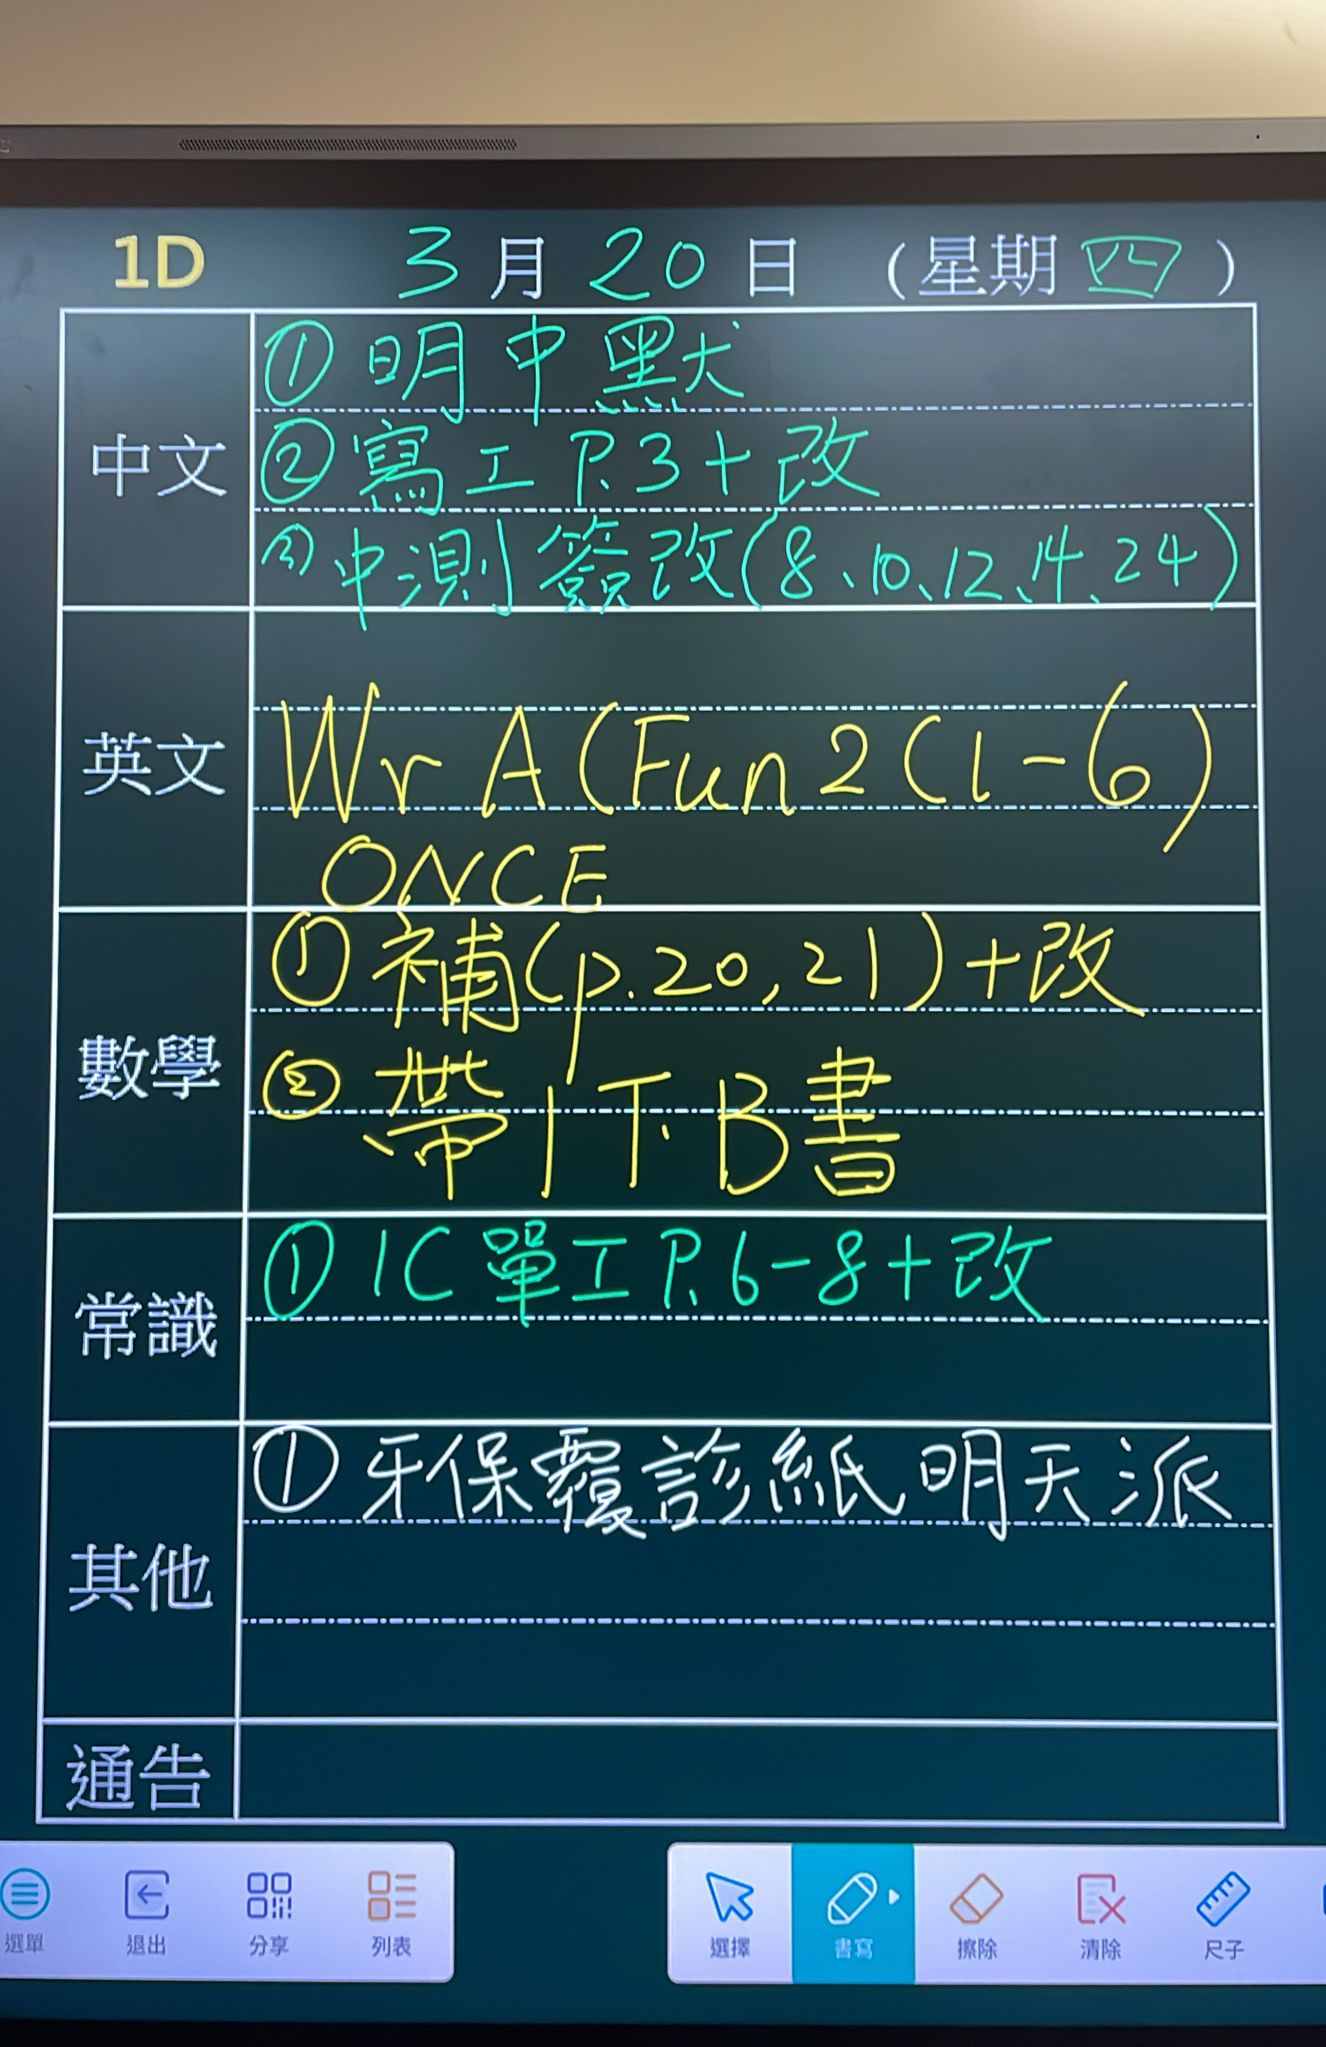 1D 3月20日 (星期四)
中文
①明中默
②寫工P.3+改
③中測簽改(8、10、12、14、24)
英文
Wr A (Fun 2 (1-6)
ONCE
數學
①補(p.20,21)+改
②帶1下B書
常識
①1C單工P.6-8+改
其他
①牙保覆診紙明天派
通告
選單 退出 分享 列表 選擇 書寫 擦除 清除 尺子